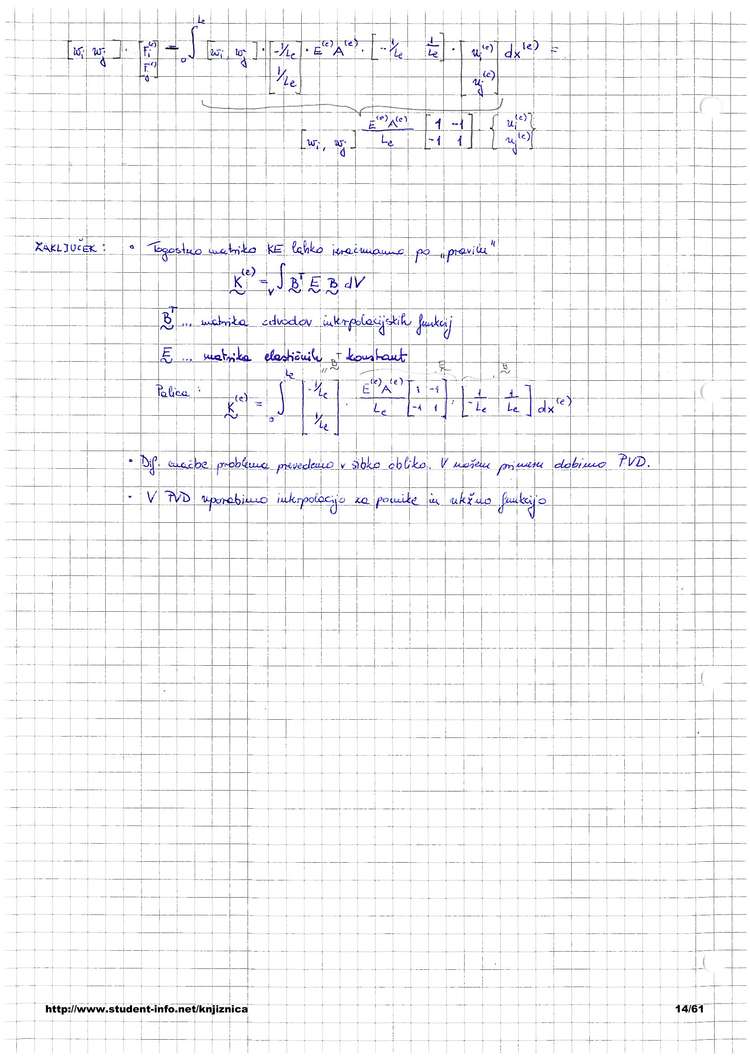 [wᵢ wⱼ] · [Fᵢ⁽ᵉ⁾ Fⱼ⁽ᵉ⁾] = ∫₀^Le [wᵢ, wⱼ] · [-1/Le 1/Le] · E⁽ᵉ⁾A⁽ᵉ⁾ · [-1/Le 1/Le] · [uᵢ⁽ᵉ⁾ uⱼ⁽ᵉ⁾] dx⁽ᵉ⁾ =
[wᵢ, wⱼ] E⁽ᵉ⁾A⁽ᵉ⁾/Le [1 -1 -1 1] · {uᵢ⁽ᵉ⁾ uⱼ⁽ᵉ⁾}
ZAKLJUČEK: • Togostno matriko KE lahko izračunamo po „pravilu"
K⁽ᵉ⁾ = ∫ᵥ Bᵀ E B dV
Bᵀ ... matrika odvodov interpolacijskih funkcij
E ... matrika elastičnih konstant
Palica: K⁽ᵉ⁾ = ∫₀^Le [-1/Le 1/Le] · E⁽ᵉ⁾A⁽ᵉ⁾/Le [1 -1 -1 1] · [-1/Le 1/Le] dx⁽ᵉ⁾
• Dif. enačbe problema prevedemo v šibko obliko. V našem primeru dobimo PVD.
• V PVD uporabimo interpolacijo za pomike in utežno funkcijo
http://www.student-info.net/knjiznica
14/61